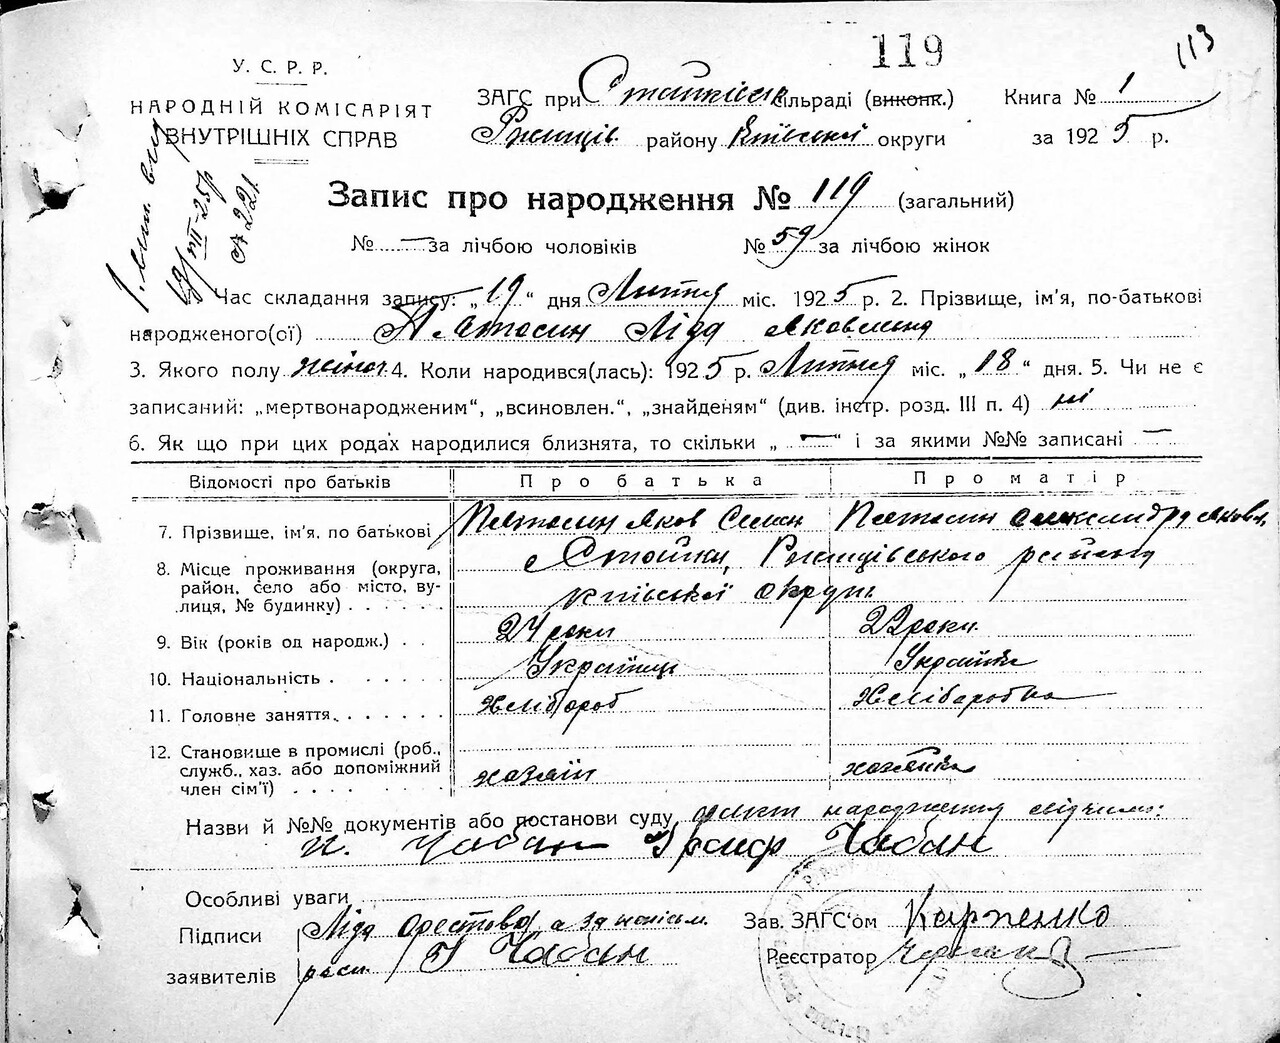 119
113
У. С. Р. Р.
НАРОДНІЙ КОМІСАРІЯТ
ВНУТРІШНІХ СПРАВ
ЗАГС при Стайківськ сільраді (виконк.)
Ржищів району Київської округи
Книга № 1
за 1925 р.
Запис про народження № 119 (загальний)
№ — за лічбою чоловіків № 59 за лічбою жінок
Час складання запису: „19“ дня Лютня міс. 1925 р. 2. Прізвище, ім'я, по-батькові
народженого(ої) Ліда Яковлевна
3. Якого полу жіноч 4. Коли народився(лась): 1925 р. Лютня міс. „18“ дня. 5. Чи не є
записаний: „мертвонародженим“, „всиновлен.“, „знайденям“ (див. інстр. розд. III п. 4) ні
6. Як що при цих родах народилися близнята, то скільки „—“ і за якими №№ записані —
Відомості про батьків Про батька Про матір
7. Прізвище, ім'я, по батькові Яков Семен Олександра Яковл.
8. Місце проживання (округа, район, село або місто, вулиця, № будинку) Стайки, Ржищівського району
Київської округи
9. Вік (років од народж.) 24 роки 22 роки
10. Національність Українець Українка
11. Головне заняття Хлібороб Хлібаробка
12. Становище в промислі (роб., служб., хаз. або допоміжний член сім'ї) хозяїн хозяйка
Назви й №№ документів або постанови суду факт народження свідчимо:
Чабан Чабан
Особливі уваги
Підписи
заявителів
Ліда
расп. Г Чабан
Зав. ЗАГС'ом Карпенко
Реєстратор